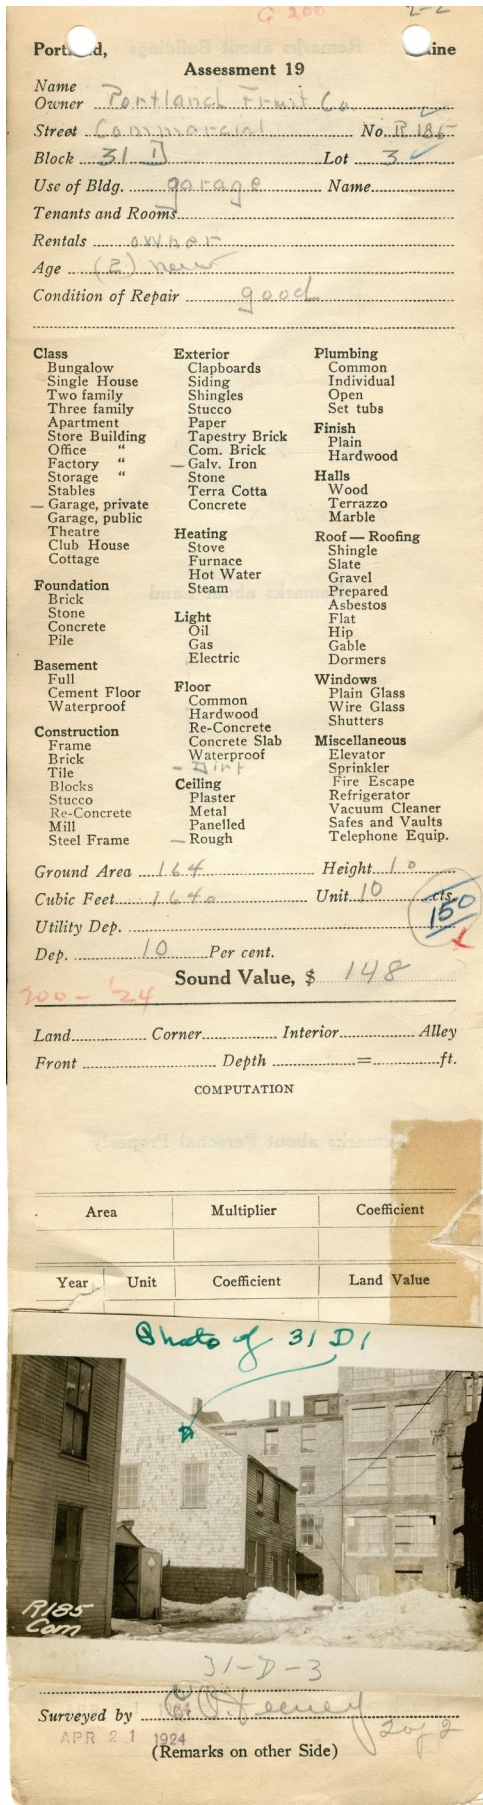 G 200
2-2
Portland, Maine
Assessment 19
Name
Owner Portland Fruit Co.
Street Commercial No. R 185
Block 31 D Lot 3
Use of Bldg. garage Name
Tenants and Rooms
Rentals owner
Age (2) new
Condition of Repair good
Class
Bungalow
Single House
Two family
Three family
Apartment
Store Building
Office "
Factory "
Storage "
Stables
– Garage, private
Garage, public
Theatre
Club House
Cottage
Foundation
Brick
Stone
Concrete
Pile
Basement
Full
Cement Floor
Waterproof
Construction
Frame
Brick
Tile
Blocks
Stucco
Re-Concrete
Mill
Steel Frame
Exterior
Clapboards
Siding
Shingles
Stucco
Paper
Tapestry Brick
Com. Brick
– Galv. Iron
Stone
Terra Cotta
Concrete
Heating
Stove
Furnace
Hot Water
Steam
Light
Oil
Gas
Electric
Floor
Common
Hardwood
Re-Concrete
Concrete Slab
Waterproof
– Dirt
Ceiling
Plaster
Metal
Panelled
– Rough
Plumbing
Common
Individual
Open
Set tubs
Finish
Plain
Hardwood
Halls
Wood
Terrazzo
Marble
Roof — Roofing
Shingle
Slate
Gravel
Prepared
Asbestos
Flat
Hip
Gable
Dormers
Windows
Plain Glass
Wire Glass
Shutters
Miscellaneous
Elevator
Sprinkler
Fire Escape
Refrigerator
Vacuum Cleaner
Safes and Vaults
Telephone Equip.
Ground Area 164 Height 10
Cubic Feet 1640 Unit 10 cts.
150
Utility Dep.
Dep. 10 Per cent.
Sound Value, $ 148
200 - '24
Land Corner Interior Alley
Front Depth = ft.
COMPUTATION
Area Multiplier Coefficient
Year Unit Coefficient Land Value
Photo of 31 D 1
R185
Com
31-D-3
Surveyed by
APR 21 1924
2 of 2
(Remarks on other Side)